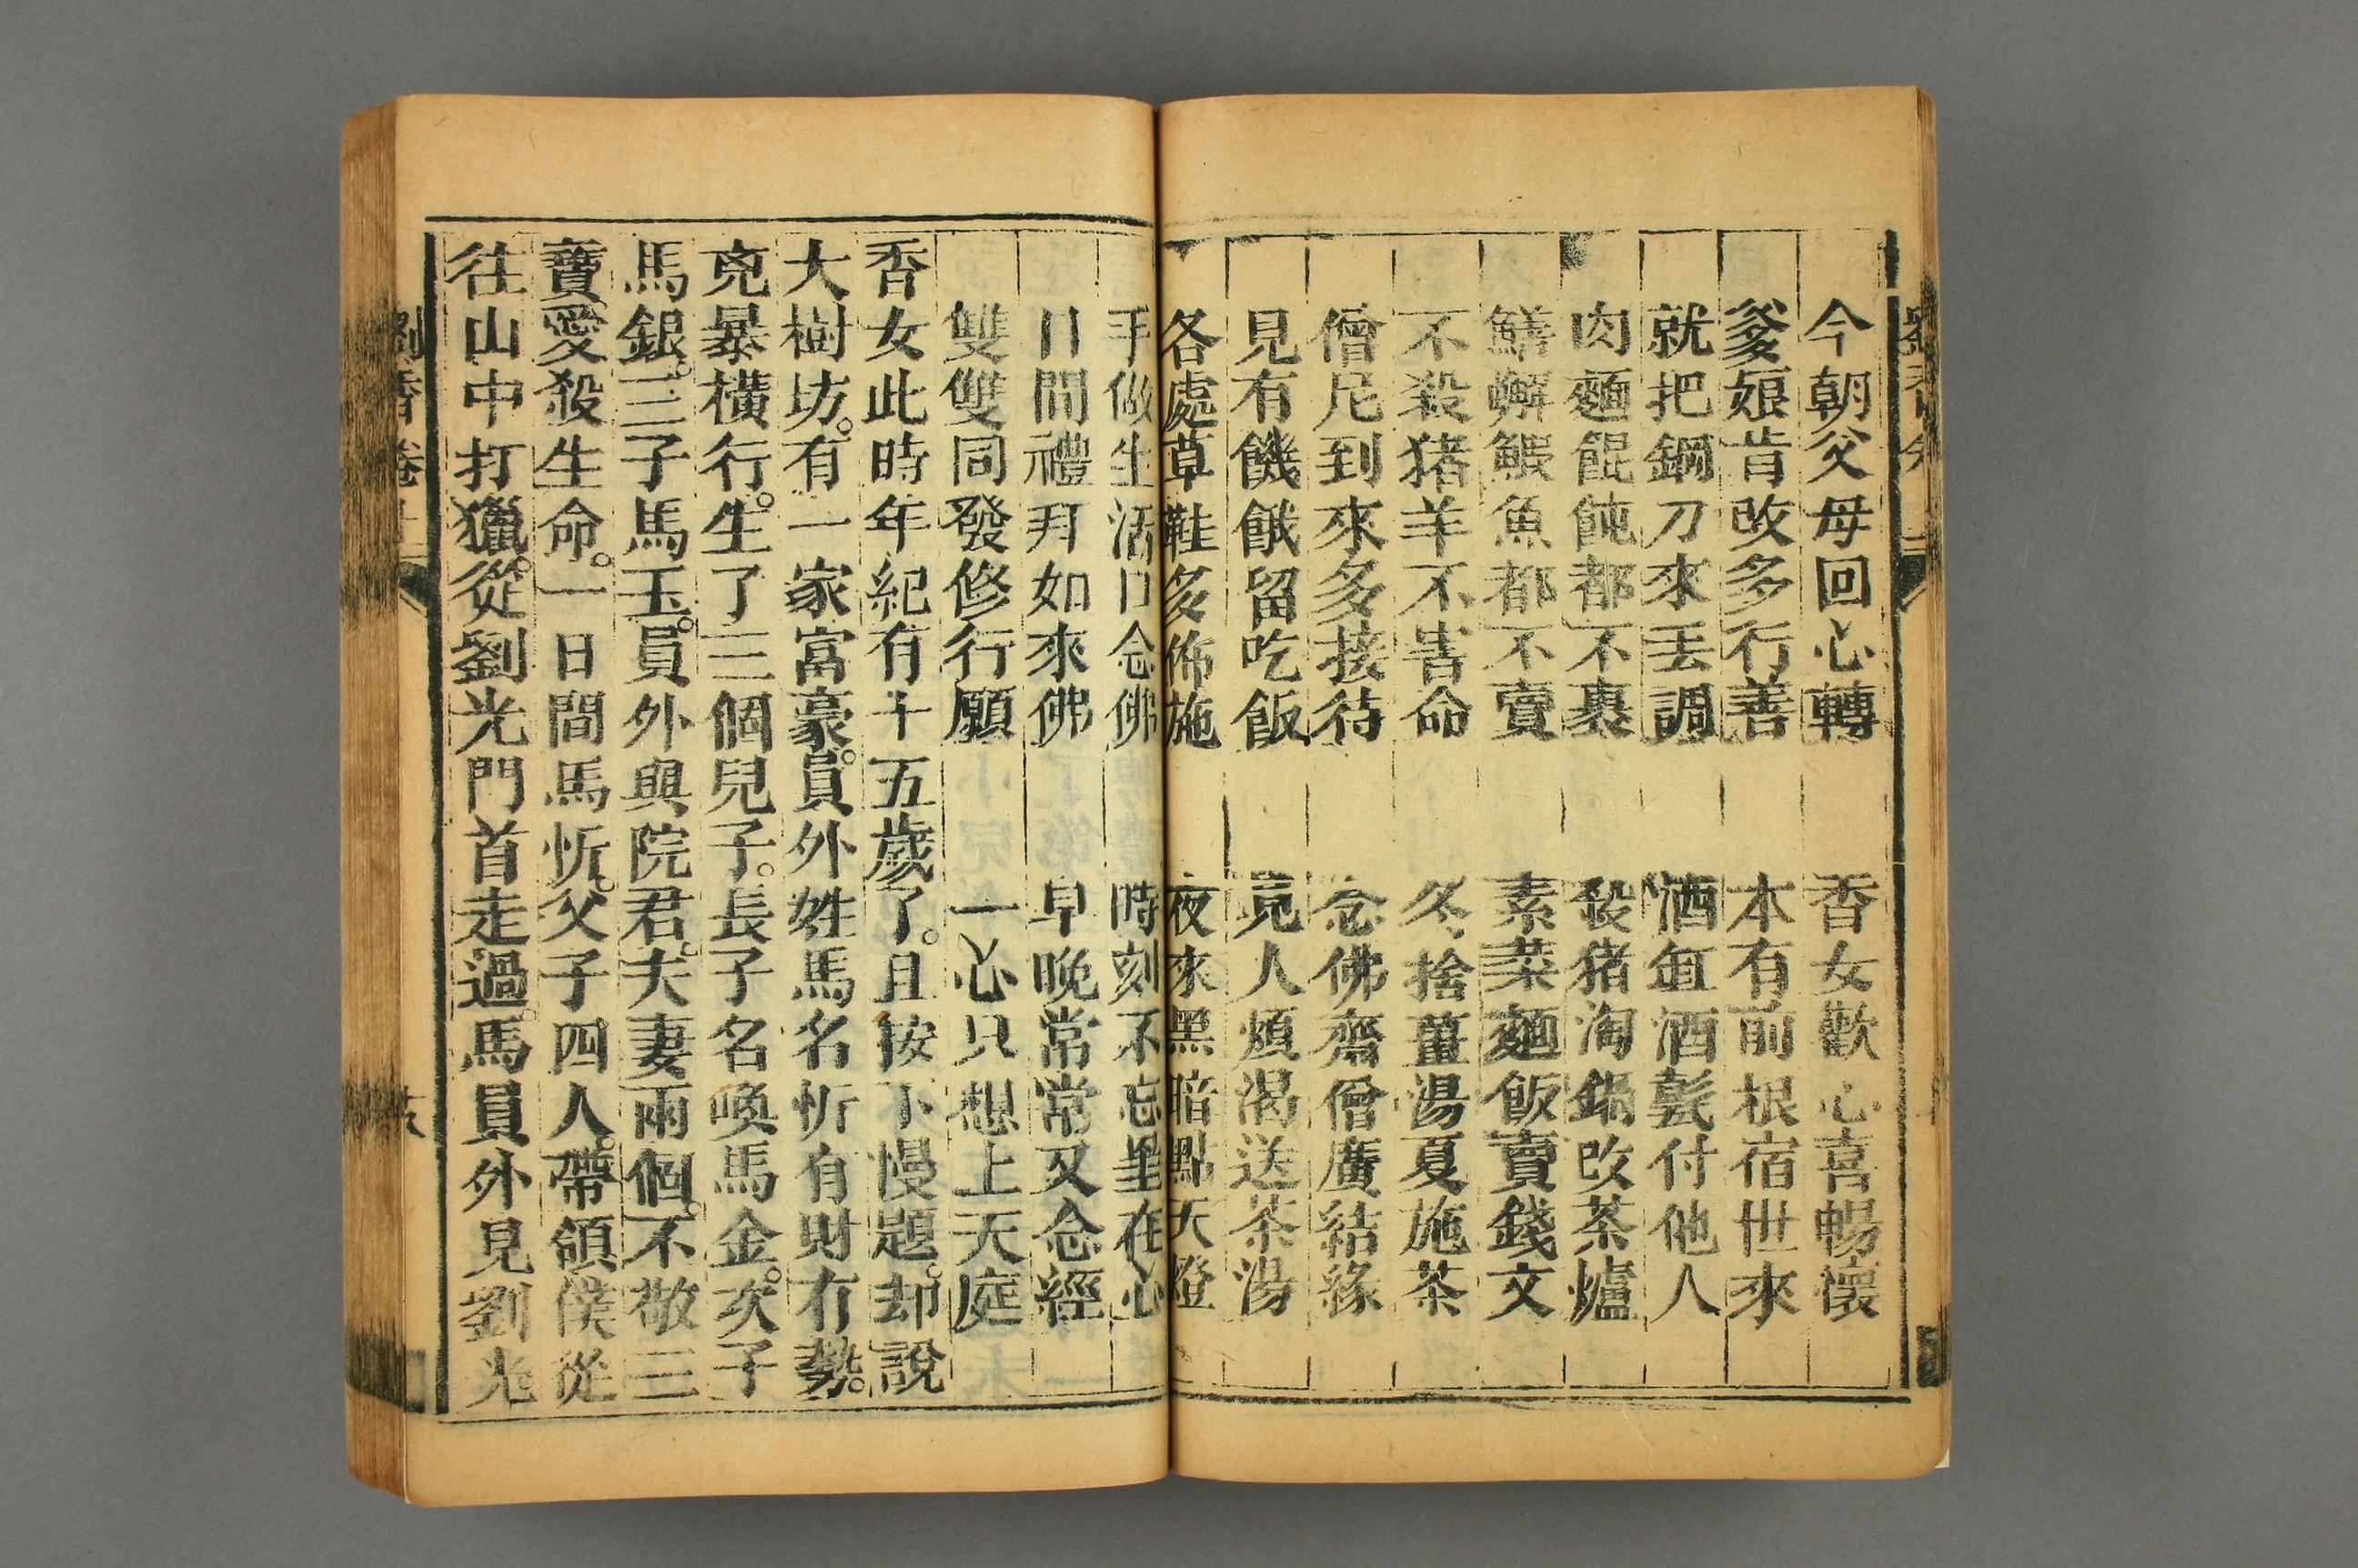 今朝父母回心轉　香女歡心喜暢懷
爹娘肯改多行善　本有前根宿世來
就把鋼刀來丟調　酒缸酒甏付他人
肉麵餛飩都不裹　殺猪淘鍋改茶爐
鱔鱓鰕魚都不賣　素菜麵飯賣錢文
不殺猪羊不害命　冬捨薑湯夏施茶
僧尼到來多接待　念佛齋僧廣結緣
見有饑餓留吃飯　見人煩渴送茶湯
各處草鞋多佈施　夜來黑暗點天燈
手做生活口念佛　時刻不忘坐在心
日間禮拜如來佛　早晚常常又念經
雙雙同發修行願　一心只想上天庭
香女此時年紀有十五歲了。且按下慢題。却說
大樹坊。有一家富豪。員外姓馬名忻有財有勢。
兇暴橫行。生了三個兒子。長子名喚馬金。次子
馬銀。三子馬玉。員外與院君。夫妻兩個。不敬三
寶愛殺生命。一日間馬忻。父子四人。帶領僕從
往山中打獵。從劉光門首走過。馬員外見劉光
劉香卷上